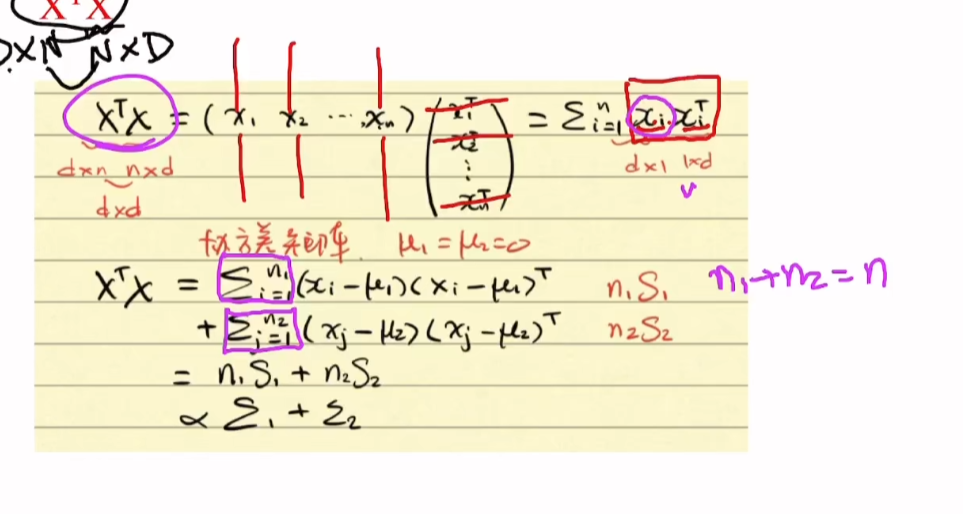 X^T X
D×N N×D
X^T X = (x_1 x_2 ⋯ , x_n) (x_1^T x_2^T ⋮ x_n^T) = Σ_{i=1}^n x_i · x_i^T
d×n n×d d×1 1×d
d×d
协方差矩阵 μ_1 = μ_2 = 0
X^T X = Σ_{i=1}^{n_1} (x_i − μ_1)(x_i − μ_1)^T n_1 S_1 n_1 + n_2 = n
+ Σ_{j=1}^{n_2} (x_j − μ_2)(x_j − μ_2)^T n_2 S_2
= n_1 S_1 + n_2 S_2
∝ Σ_1 + Σ_2